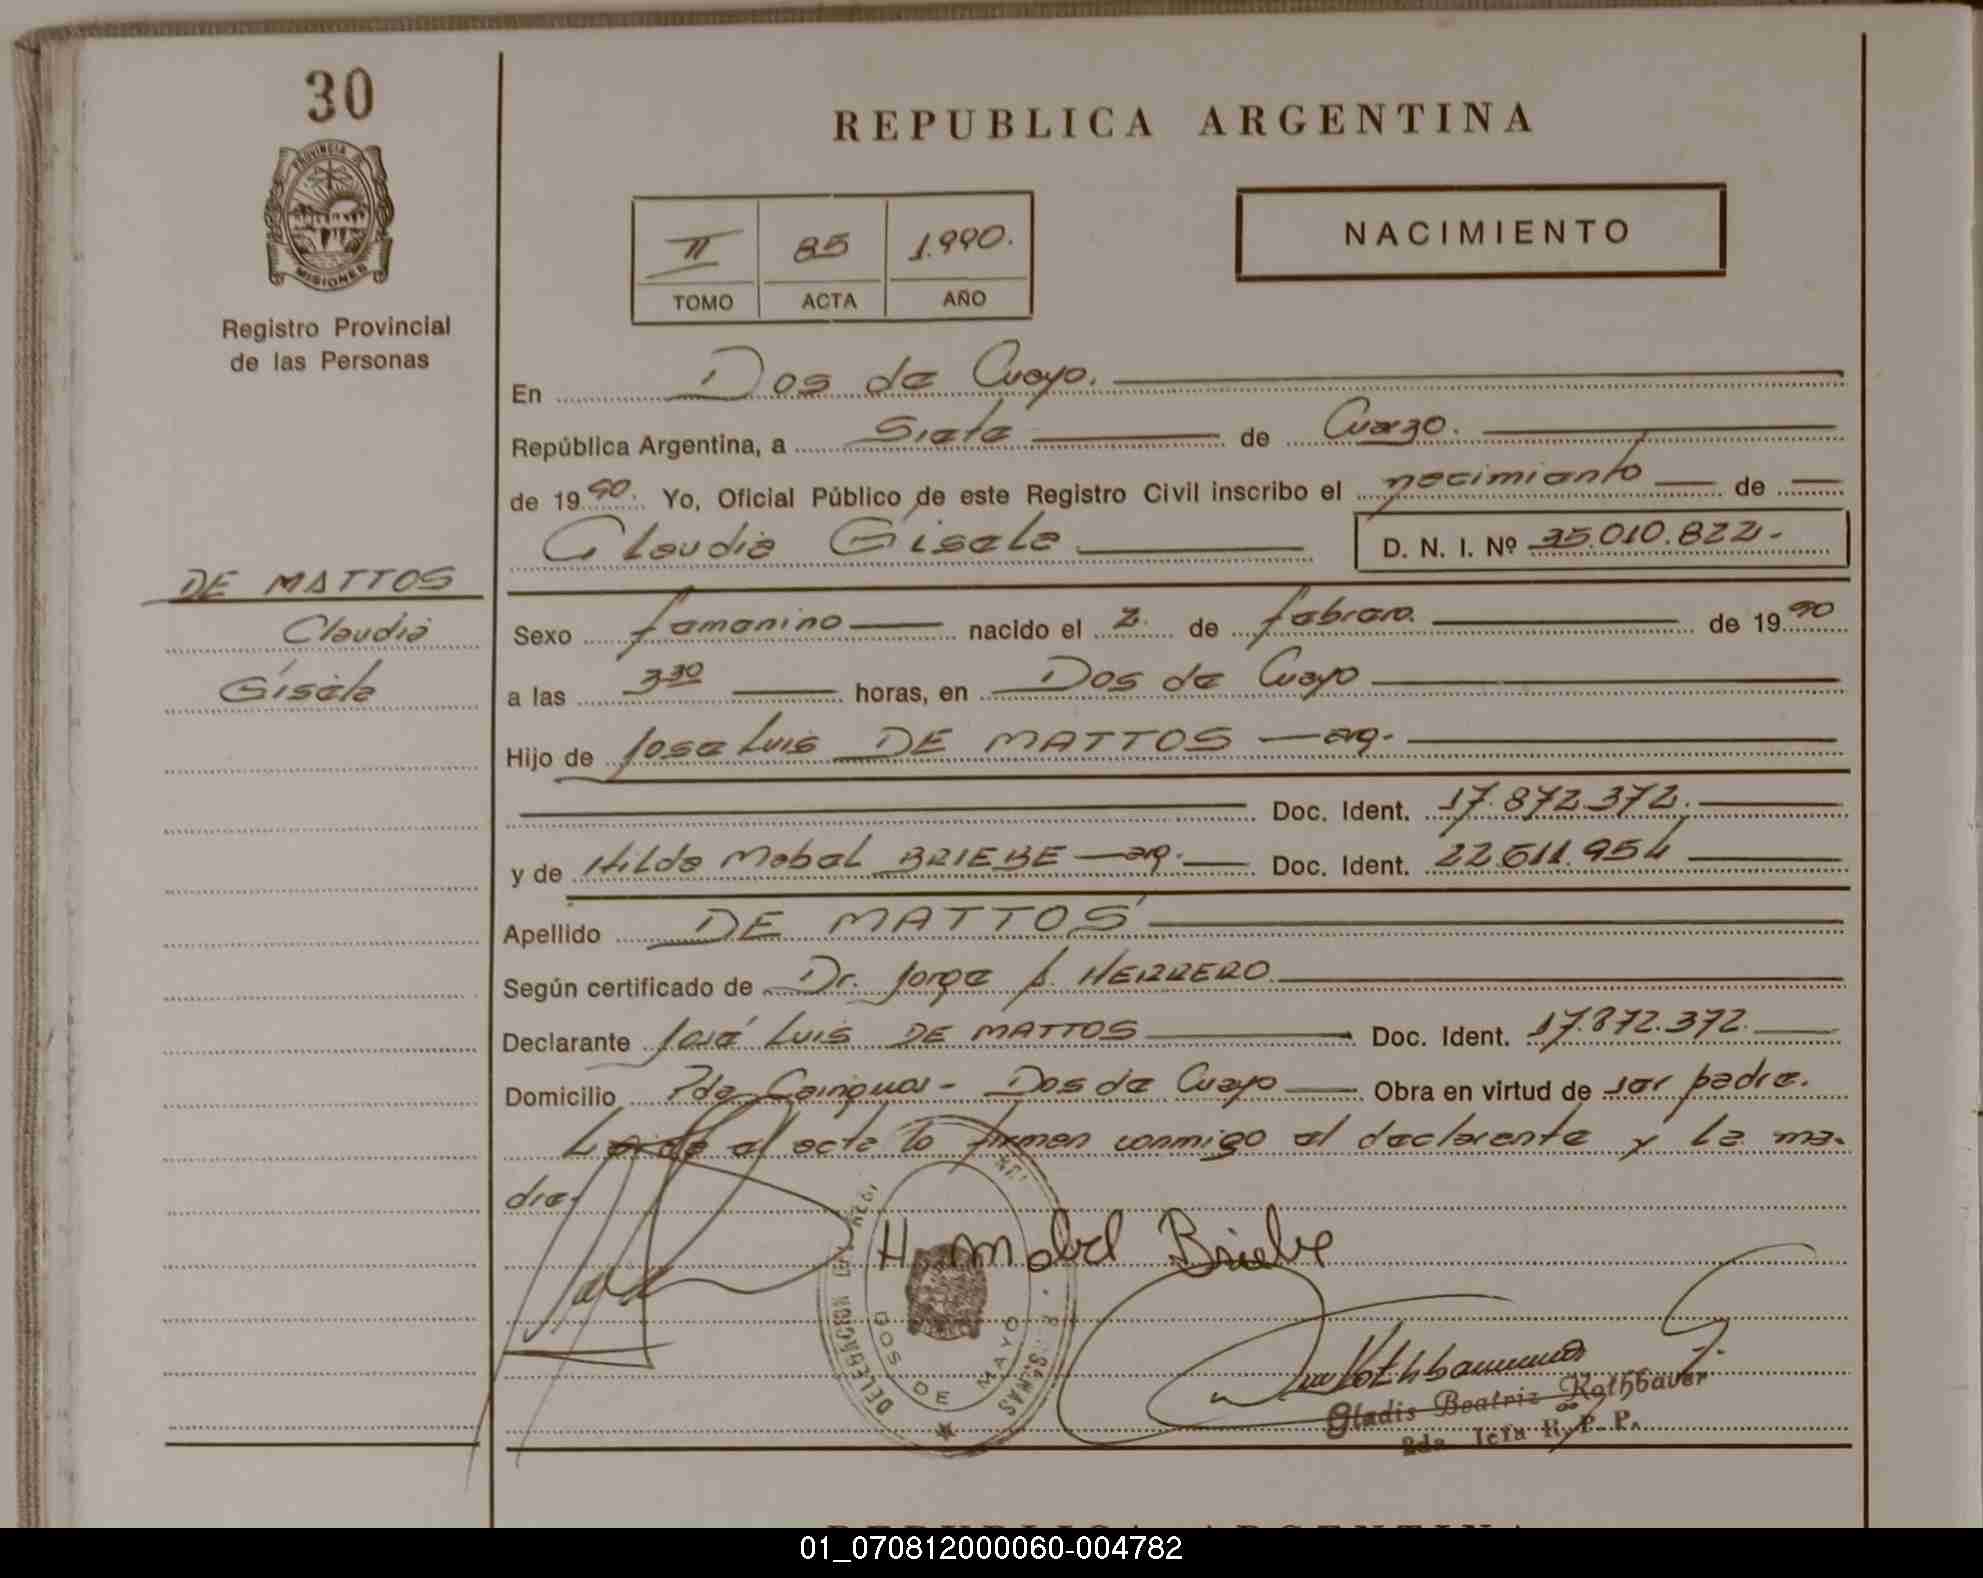 30
PROVINCIA DE
MISIONES
Registro Provincial
de las Personas
DE MATTOS
Claudia
Gisela
REPUBLICA ARGENTINA
NACIMIENTO
II 85 1.990.
TOMO ACTA AÑO
En Dos de Mayo.
República Argentina, a Siete de Marzo.
de 1990. Yo, Oficial Público de este Registro Civil inscribo el nacimiento de
Claudia Gisela D. N. I. Nº 35.010.822.-
Sexo femenino nacido el 2. de febrero. de 1990
a las 3 30 horas, en Dos de Mayo
Hijo de Jose Luis DE MATTOS — arg.
Doc. Ident. 17.872.372.
y de Hilda Mabel BRIEBE — arg. Doc. Ident. 22.611.954
Apellido DE MATTOS
Según certificado de Dr. Jorge A. HERRERO.
Declarante José Luis DE MATTOS Doc. Ident. 17.872.372.
Domicilio Pde Cainguas - Dos de Mayo Obra en virtud de ser padre.
Leida el acta lo firman conmigo el declarante y la ma-
dre.
H. Mabel Briebe
DELEGACION
DOS DE MAYO
Gladis Beatriz Rothbauer
2da Jefa R. P. P.
REPUBLICA ARGENTINA
01_070812000060-004782